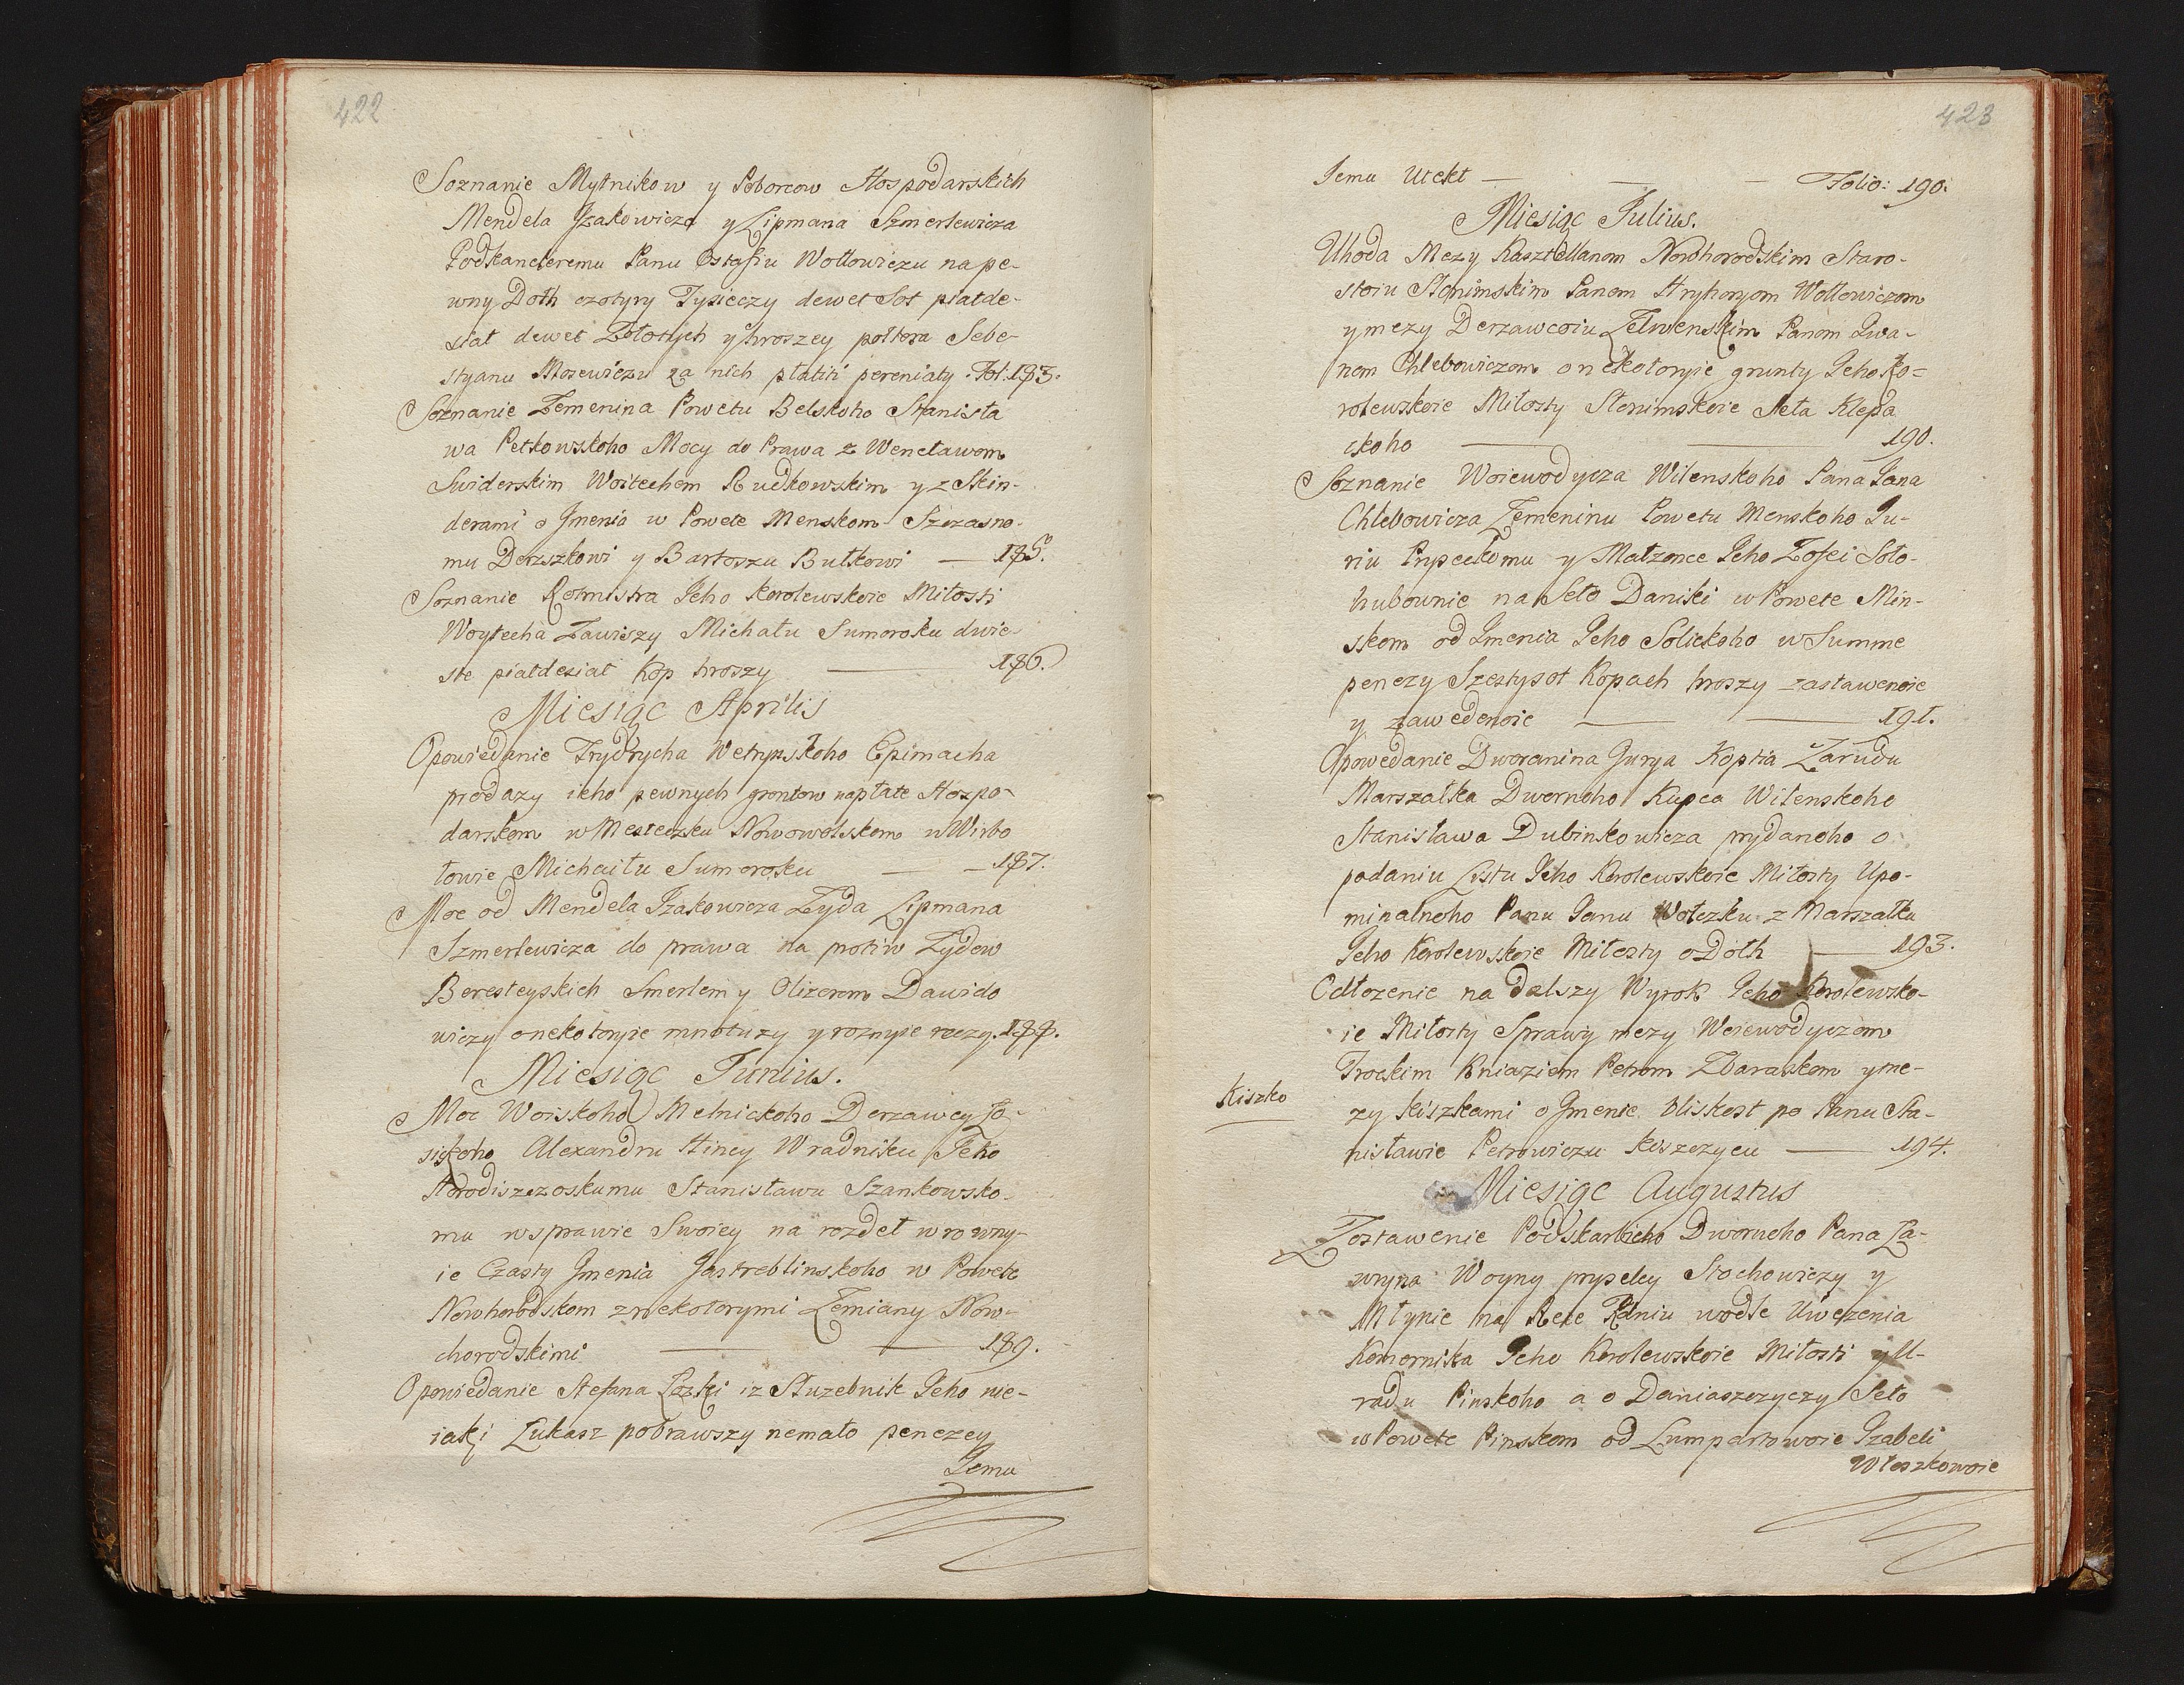 422
Soznanie Mytnikow y Poborcow Hospodarskich
Mendela Izakowicza y Lipmana Szmerlewicza
Podkancleremu Panu Ostafiu Wołłowiczu na pe-
wny Dołh czotyry Tysieczy dewet Sot piatde-
siat dewet Zołotych y hroszey połtora Sebe-
styanu Mosewiczu za nich płatiti pereniaty. Fol: 183.
Soznanie Zemenina Powetu Belskoho Stanisła
wa Petkowskoho Mocy do Prawa z Wencławom
Swiderskim Woitechem Rudkowskim y z Skin-
derami o Imenia w Powete Menskom Szczasno-
mu Derszkowi y Bartoszu Butkowi — 185.
Soznanie Rotmistra Jeho Korolewskoie Miłosti
Woytecha Zawiszy Michału Sumoroku dwie-
ste piatdesiat Kop hroszy — 186.
Miesiąc Aprilis
Opowiedanie Frydrycha Wetrynskoho Epimacha
prodazy ieho pewnych grontow na płate Hospo-
darskom w Mesteczku Nowowolskom u Wirbo
łowie Michaiłu Sumoroku — — 187.
Moc od Mendela Izakowicza Zyda Lipmana
Szmerlewicza do prawa na protiw Zydow
Beresteyskich Smerlem y Olizerom Dawido
wiczy o nekotoryie mnotuzy y roznyie reczy. 188.
Miesiąc Junius.
Moc Woiskoho Melnickoho Derzawcy Ło-
sickoho Alexandru Hincy Wradniku Jeho
Horodiszczoskumu Stanisławu Szankowsko-
mu w sprawie Swoiey na rozdeł w rowny-
ie Czasty Imenia Jastreblinskoho w Powete
Nowhorodskom z nekotorymi Zemiany Now-
horodskimi — — 189.
Opowiedanie Stefana Łozki iz Słuzebnik Jeho nie-
iaki Łukasz pobrawszy nemało penezey
Jemu
423
Jemu Utekł — — — Folio: 190.
Miesiąc Julius.
Uhoda Mezy Kasztellanom Nowhorodskim Staro-
stoiu Słonimskim Panom Hryhoryom Wołłowiczom
y mezy Derzawcoiu Zelwenskim Panom Iwa-
nom Chlebowiczom o nekotoryie grunty Jeho Ko=
rolewskoie Miłosty Słonimskoie Seła Klepa
ckoho — — 190.
Soznanie Woiewodycza Wilenskoho Pana Jana
Chlebowicza Zemeninu Powetu Menskoho Ju-
riu Prypeckomu y Małzonce Jeho Zofei Soło-
hubownie na Seło Daniki w Powete Min-
skom od Imenia Jeho Solickoho w Summe
penezy Szestysot Kopach hroszy zastawenoie
y zawedenoie — — 191.
Opowedanie Dworanina Jurya Koptia Zarudu
Marszałka Dwornoho Kupca Wilenskoho
Stanisława Dubinkowicza prydanoho o
podaniu Listu Jeho Korolewskoie Miłosty Upo-
minalnoho Panu Janu Wołczku z Marszałku
Jeho Korolewskoie Miłosty o Dołh — 193.
Odłozenie na dalszy Wyrok Jeho Korolewsko-
ie Miłosty Sprawy mezy Woiewodyczom
Trockim Kniaziem Petrom Zbaraskom y me-
Kiszko
zy Kiszkami o Imenie bliskost po Panu Sta-
nisławie Petrowiczu Kiszczycu — 194.
Miesiąc Augustus
Zostawenie Podskarbieho Dwornoho Pana Ła-
wryna Woyny pry seley Stochowiczy y
Młynie na Rece wodle Uwezenia
Komornika Jeho Korolewskoie Miłosti y U-
radu Pinskoho a o Daniaszczyczy Seło
w Powete Pinskom od Lumpartowoie Izabeli
Włoszkowoie